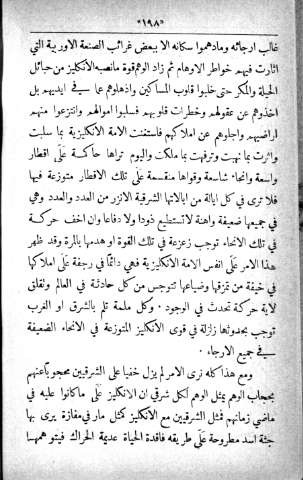 «١٩٨»
غالب ارجائه وما دهموا سكانه الا ببعض غرائب الصنعة الاوربية التي
اثارت فيهم خواطر الاوهام ثم زاد الوهم قوة ما نصبه الانكليز من حبائل
الحيلة والمكر حتى خلبوا قلوب المساكين واذهلوهم عما في ايديهم بل
اخذوهم عن عقولهم وخطرات قلوبهم فسلبوا اموالهم وانتزعوا منهم
اراضيهم واجلوهم عن املاكهم فاستغنت الامة الانكليزية بما سلبت
واثرت بما نهبت وترفهت بما ملكت واليوم تراها حاكمة على اقطار
واسعة وانحاء شاسعة وقواها منقسمة على تلك الاقطار متوزعة فيها
فلا ترى في كل ايالة من ايالاتها الشرقية الا نزر من العدد والعدد وهي
في جميعها ضعيفة واهنة لا تستطيع ذودا ولا دفاعا وان اخف حركة
في تلك الانحاء توجب زعزعة في تلك القوة او هدمها بالمرة وقد ظهر
هذا الامر على انفس الامة الانكليزية فهي دائما في رجفة على املاكها
في خيفة من تمزقها وضياعها تتوجس من كل حادثة في العالم وتقلق
لاية حركة تحدث في الوجود . وكل ملمة تلم بالشرق او الغرب
توجب بحدوثها زلزلة في قوى الانكليز المتوزعة في الانحاء الضعيفة
في جميع الارجاء .
ومع هذا كله نرى الامر لم يزل خفيا على الشرقيين محجوبا عنهم
بحجاب الوهم يمثل الوهم لكل شرقي ان الانكليز على ما كانوا عليه في
ماضي زمانهم فمثل الشرقيين مع الانكليز كمثل مار في مفازة يرى بها
جثة اسد مطروحة على طريقه فاقدة الحياة عديمة الحراك فيتوهمها